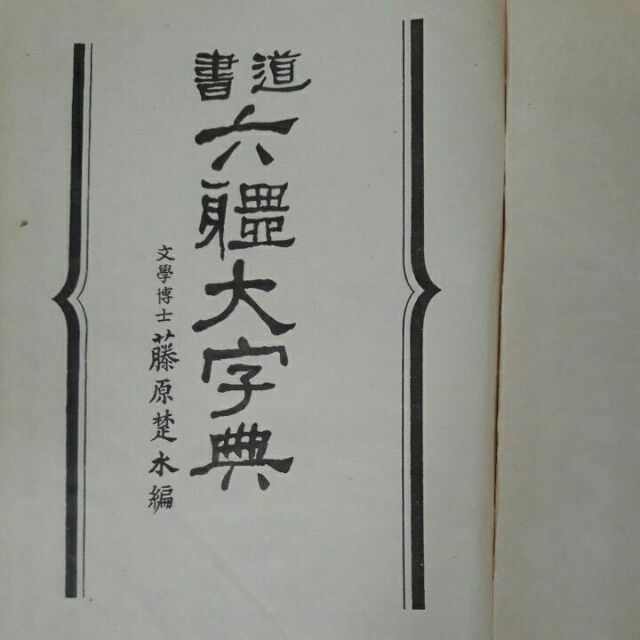 書道
六軆大字典
文學博士 藤原楚水編